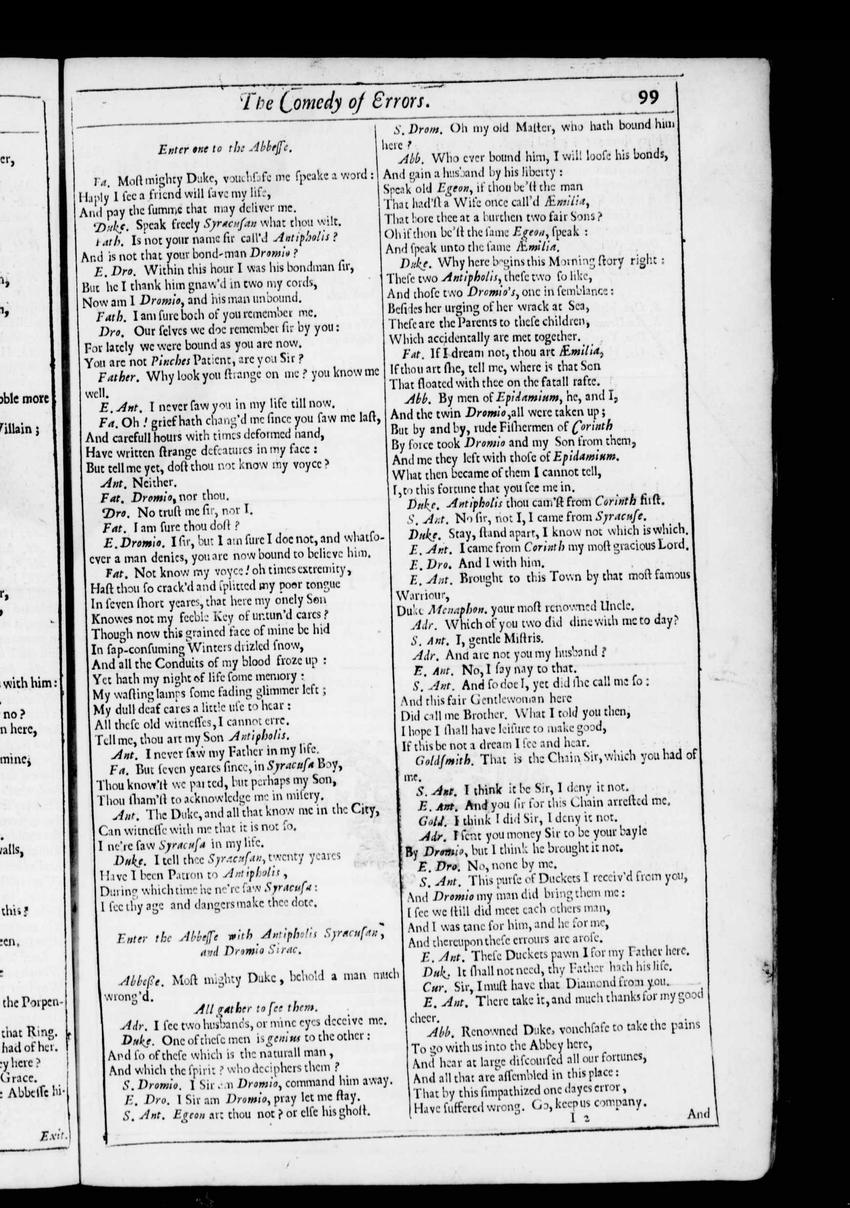 er,
n,
n,
oble more
Villain ;
r,
with him:
no?
n here,
mine;
valls,
this?
een.
e
the Porpen-
that Ring.
had of her.
ey here?
Grace.
: Abbeſſe hi-
Exit.
The Comedy of Errors.
99
Enter one to the Abbeſſe.
Fa. Moſt mighty Duke, vouchſafe me ſpeake a word:
Haply I ſee a friend will ſave my life,
And pay the ſumme that may deliver me.
Duke. Speak freely Syracuſan what thou wilt.
Fath. Is not your name ſir call'd Antipholis?
And is not that your bond-man Dromio?
E. Dro. Within this hour I was his bondman ſir,
But he I thank him gnaw'd in two my cords,
Now am I Dromio, and his man unbound.
Fath. I am ſure both of you remember me.
Dro. Our ſelves we doe remember ſir by you:
For lately we were bound as you are now.
You are not Pinches Patient, are you Sir?
Father. Why look you ſtrange on me? you know me
well.
E. Ant. I never ſaw you in my life till now.
Fa. Oh! grief hath chang'd me ſince you ſaw me laſt,
And carefull hours with times deformed hand,
Have written ſtrange defeatures in my face:
But tell me yet, doſt thou not know my voyce?
Ant. Neither.
Fat. Dromio, nor thou.
Dro. No truſt me ſir, nor I.
Fat. I am ſure thou doſt?
E. Dromio. I ſir, but I am ſure I doe not, and whatſo-
ever a man denies, you are now bound to believe him.
Fat. Not know my voyce! oh times extremity,
Haſt thou ſo crack'd and ſplitted my poor tongue
In ſeven ſhort yeares, that here my onely Son
Knowes not my feeble Key of untun'd cares?
Though now this grained face of mine be hid
In ſap-conſuming Winters drizled ſnow,
And all the Conduits of my blood froze up:
Yet hath my night of life ſome memory:
My waſting lamps ſome fading glimmer left;
My dull deaf eares a little uſe to hear:
All theſe old witneſſes, I cannot erre.
Tell me, thou art my Son Antipholis.
Ant. I never ſaw my Father in my life.
Fa. But ſeven yeares ſince, in Syracuſa Boy,
Thou know'ſt we parted, but perhaps my Son,
Thou ſham'ſt to acknowledge me in miſery.
Ant. The Duke, and all that know me in the City,
Can witneſſe with me that it is not ſo.
I ne're ſaw Syracuſa in my life.
Duke. I tell thee Syracuſan, twenty yeares
Have I been Patron to Antipholis,
During which time he ne're ſaw Syracuſa:
I ſee thy age and dangers make thee dote.
Enter the Abbeſſe with Antipholis Syracuſan,
and Dromio Sirac.
Abbeſſe. Moſt mighty Duke, behold a man much
wrong'd.
All gather to ſee them.
Adr. I ſee two husbands, or mine eyes deceive me.
Duke. One of theſe men is genius to the other:
And ſo of theſe which is the naturall man,
And which the ſpirit? who deciphers them?
S. Dromio. I Sir am Dromio, command him away.
E. Dro. I Sir am Dromio, pray let me ſtay.
S. Ant. Egeon art thou not? or elſe his ghoſt.
S. Drom. Oh my old Maſter, who hath bound him
here?
Abb. Who ever bound him, I will looſe his bonds,
And gain a husband by his liberty:
Speak old Egeon, if thou be'ſt the man
That had'ſt a Wife once call'd Æmilia,
That bore thee at a burthen two fair Sons?
Oh if thou be'ſt the ſame Egeon, ſpeak:
And ſpeak unto the ſame Æmilia.
Duke. Why here begins this Morning ſtory right:
Theſe two Antipholis, theſe two ſo like,
And thoſe two Dromio's, one in ſemblance:
Beſides her urging of her wrack at Sea,
Theſe are the Parents to theſe children,
Which accidentally are met together.
Fat. If I dream not, thou art Æmilia,
If thou art ſhe, tell me, where is that Son
That floated with thee on the fatall rafte.
Abb. By men of Epidamium, he, and I,
And the twin Dromio, all were taken up;
But by and by, rude Fiſhermen of Corinth
By force took Dromio and my Son from them,
And me they left with thoſe of Epidamium.
What then became of them I cannot tell,
I, to this fortune that you ſee me in.
Duke. Antipholis thou cam'ſt from Corinth firſt.
S. Ant. No ſir, not I, I came from Syracuſe.
Duke. Stay, ſtand apart, I know not which is which.
E. Ant. I came from Corinth my moſt gracious Lord.
E. Dro. And I with him.
E. Ant. Brought to this Town by that moſt famous
Warriour,
Duke Menaphon. your moſt renowned Uncle.
Adr. Which of you two did dine with me to day?
S. Ant. I, gentle Miſtris.
Adr. And are not you my husband?
E. Ant. No, I ſay nay to that.
S. Ant. And ſo doe I, yet did ſhe call me ſo:
And this fair Gentlewoman here
Did call me Brother. What I told you then,
I hope I ſhall have leiſure to make good,
If this be not a dream I ſee and hear.
Goldſmith. That is the Chain Sir, which you had of
me.
S. Ant. I think it be Sir, I deny it not.
E. Ant. And you ſir for this Chain arreſted me.
Gold. I think I did Sir, I deny it not.
Adr. I ſent you money Sir to be your bayle
By Dromio, but I think he brought it not.
E. Dro. No, none by me.
S. Ant. This purſe of Duckets I receiv'd from you,
And Dromio my man did bring them me:
I ſee we ſtill did meet each others man,
And I was tane for him, and he for me,
And thereupon theſe errours are aroſe.
E. Ant. Theſe Duckets pawn I for my Father here.
Duk. It ſhall not need, thy Father hath his life.
Cur. Sir, I muſt have that Diamond from you.
E. Ant. There take it, and much thanks for my good
cheer.
Abb. Renowned Duke, vouchſafe to take the pains
To go with us into the Abbey here,
And hear at large diſcourſed all our fortunes,
And all that are aſſembled in this place:
That by this ſimpathized one dayes error,
Have ſuffered wrong. Go, keep us company.
I 2
And